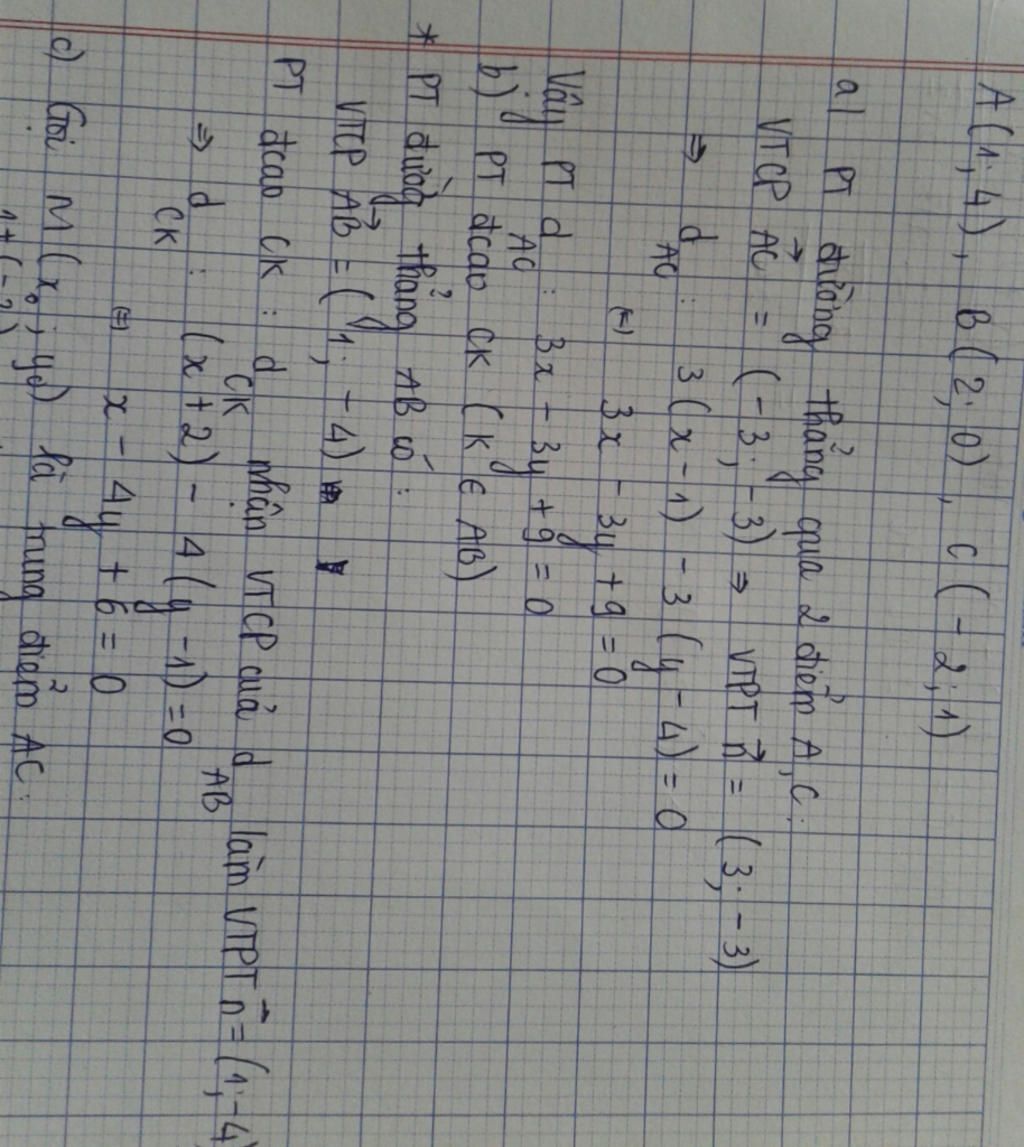 A(1; 4), B(2; 0), C(-2; 1)
a) PT đường thẳng qua 2 điểm A, C:
VTCP AC→ = (-3; -3) ⇒ VTPT n→ = (3; -3)
⇒ d AC : 3(x - 1) - 3(y - 4) = 0
(=) 3x - 3y + 9 = 0
Vậy PT d AC : 3x - 3y + 9 = 0
b) PT đcao CK (K ∈ AB)
* PT đường thẳng AB có:
VTCP AB→ = (1; -4)
PT đcao CK: d CK nhận VTCP của d AB làm VTPT n→ = (1; -4)
⇒ d CK : (x + 2) - 4(y - 1) = 0
(=) x - 4y + 6 = 0
c) Gọi M(x₀; y₀) là trung điểm AC:
1 + (-2)